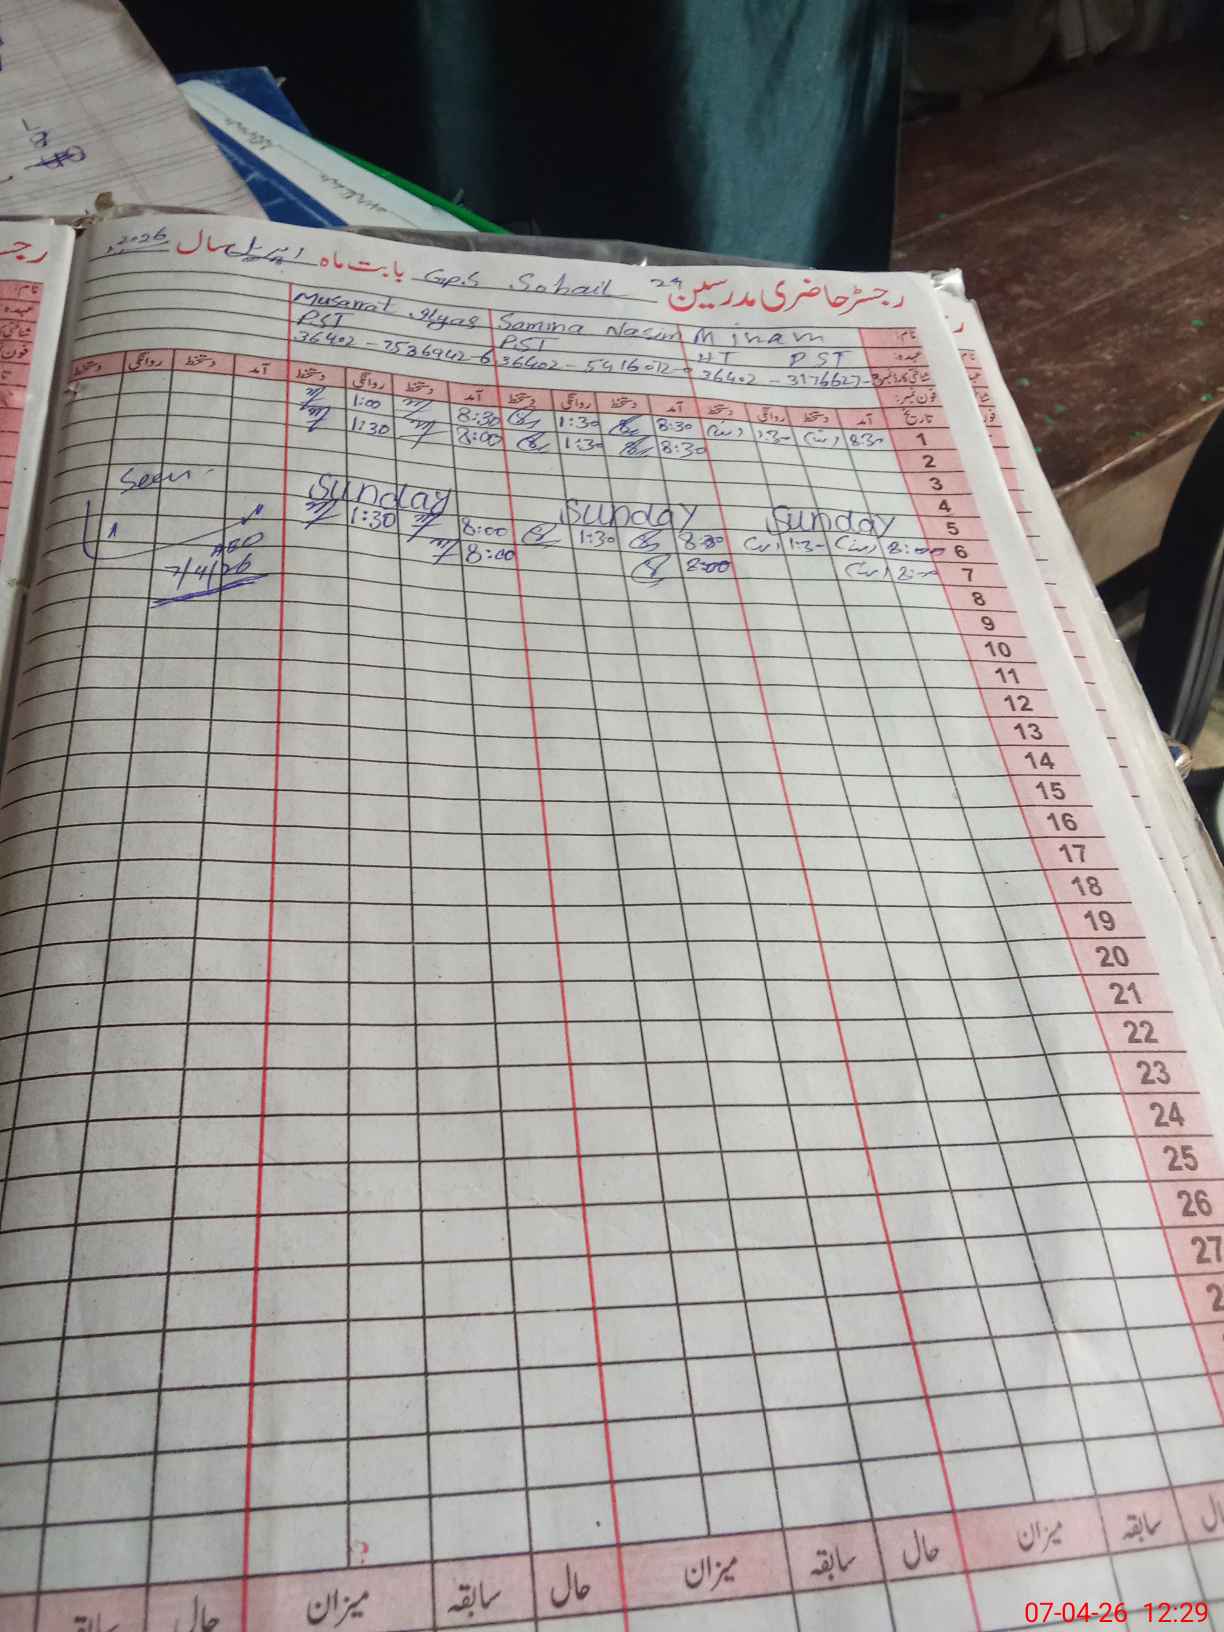 رجسٹر حاضری مدرسین GPS Sohail بابت ماہ اپریل سال 2026
نام: Minam Samina Nasim Musarrat Ilyas
عہدہ: HT PST PST PST
36402-5416012-0 36402-7536942-6
تاریخ آمد دستخط روانگی دستخط آمد دستخط روانگی دستخط آمد دستخط روانگی دستخط آمد دستخط روانگی دستخط
1 8:30 1:30 8:30 1:30 8:30 1:00
2 8:30 1:30 8:00 1:30
3
4
5 Sunday Sunday Sunday
6 8:00 1:30 1:30 8:00 1:30
7 8:00 8:00 8:00
Seen
AEO
7/4/26
8
9
10
11
12
13
14
15
16
17
18
19
20
21
22
23
24
25
26
27
حال سابقہ میزان حال سابقہ میزان حال سابقہ میزان حال
07-04-26 12:29